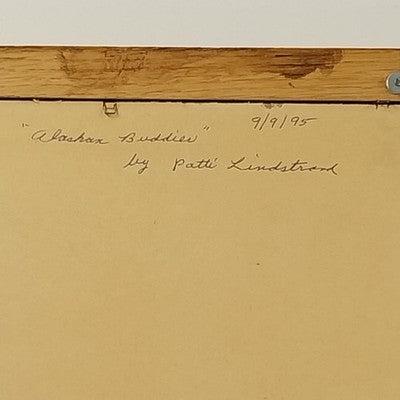 "Alaskan Buddies" 9/9/95
by Patti Lindstrand